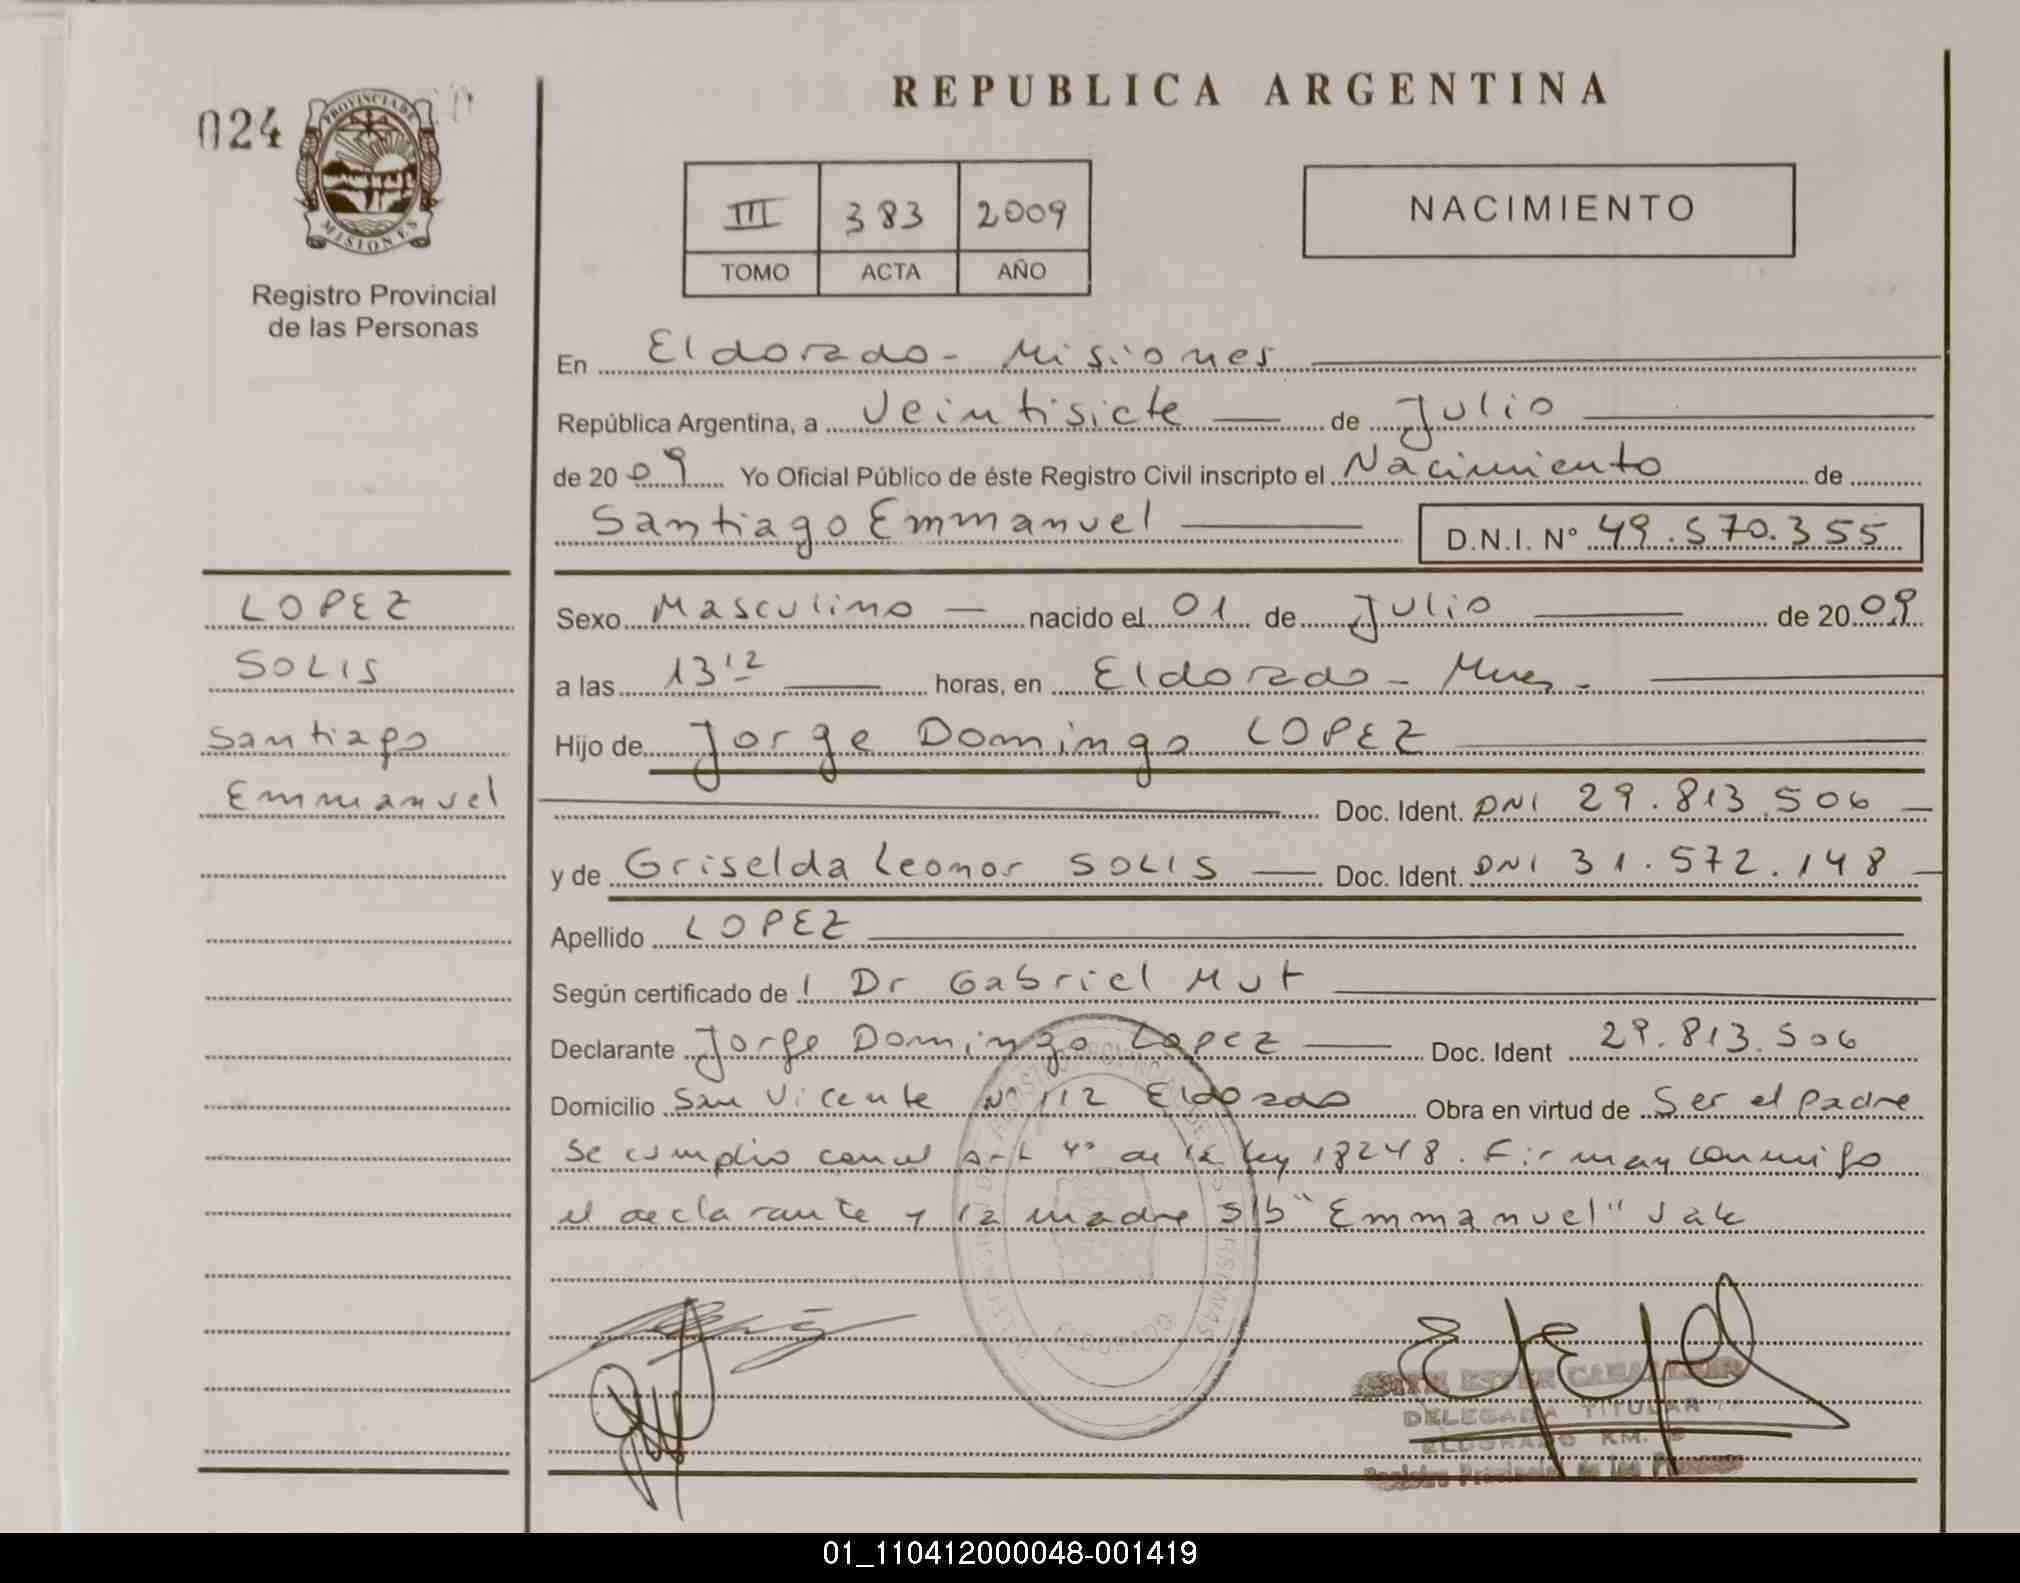 REPUBLICA ARGENTINA
024
PROVINCIA DE
MISIONES
Registro Provincial
de las Personas
III 383 2009
TOMO ACTA AÑO
NACIMIENTO
En Eldorado - Misiones
República Argentina, a Veintisiete de Julio
de 2009 Yo Oficial Público de éste Registro Civil inscripto el Nacimiento de
Santiago Emmanuel D.N.I. N° 49.570.355
LOPEZ
SOLIS
Santiago
Emmanuel
Sexo Masculino nacido el 01 de Julio de 2009
a las 13 12 horas, en Eldorado - Mnes -
Hijo de Jorge Domingo LOPEZ
Doc. Ident. DNI 29.813.506
y de Griselda Leonor SOLIS Doc. Ident. DNI 31.572.148
Apellido LOPEZ
Según certificado de l Dr Gabriel Mut
Declarante Jorge Domingo Lopez Doc. Ident 29.813.506
Domicilio San Vicente N° 112 Eldorado Obra en virtud de Ser el padre
Se cumplio con el art 4° de la ley 18248. Firman conmigo
el declarante y la madre S/b "Emmanuel" Vale
ELDORADO
DELEGADA TITULAR
ELDORADO KM.
Registro Provincial de las Personas
01_110412000048-001419